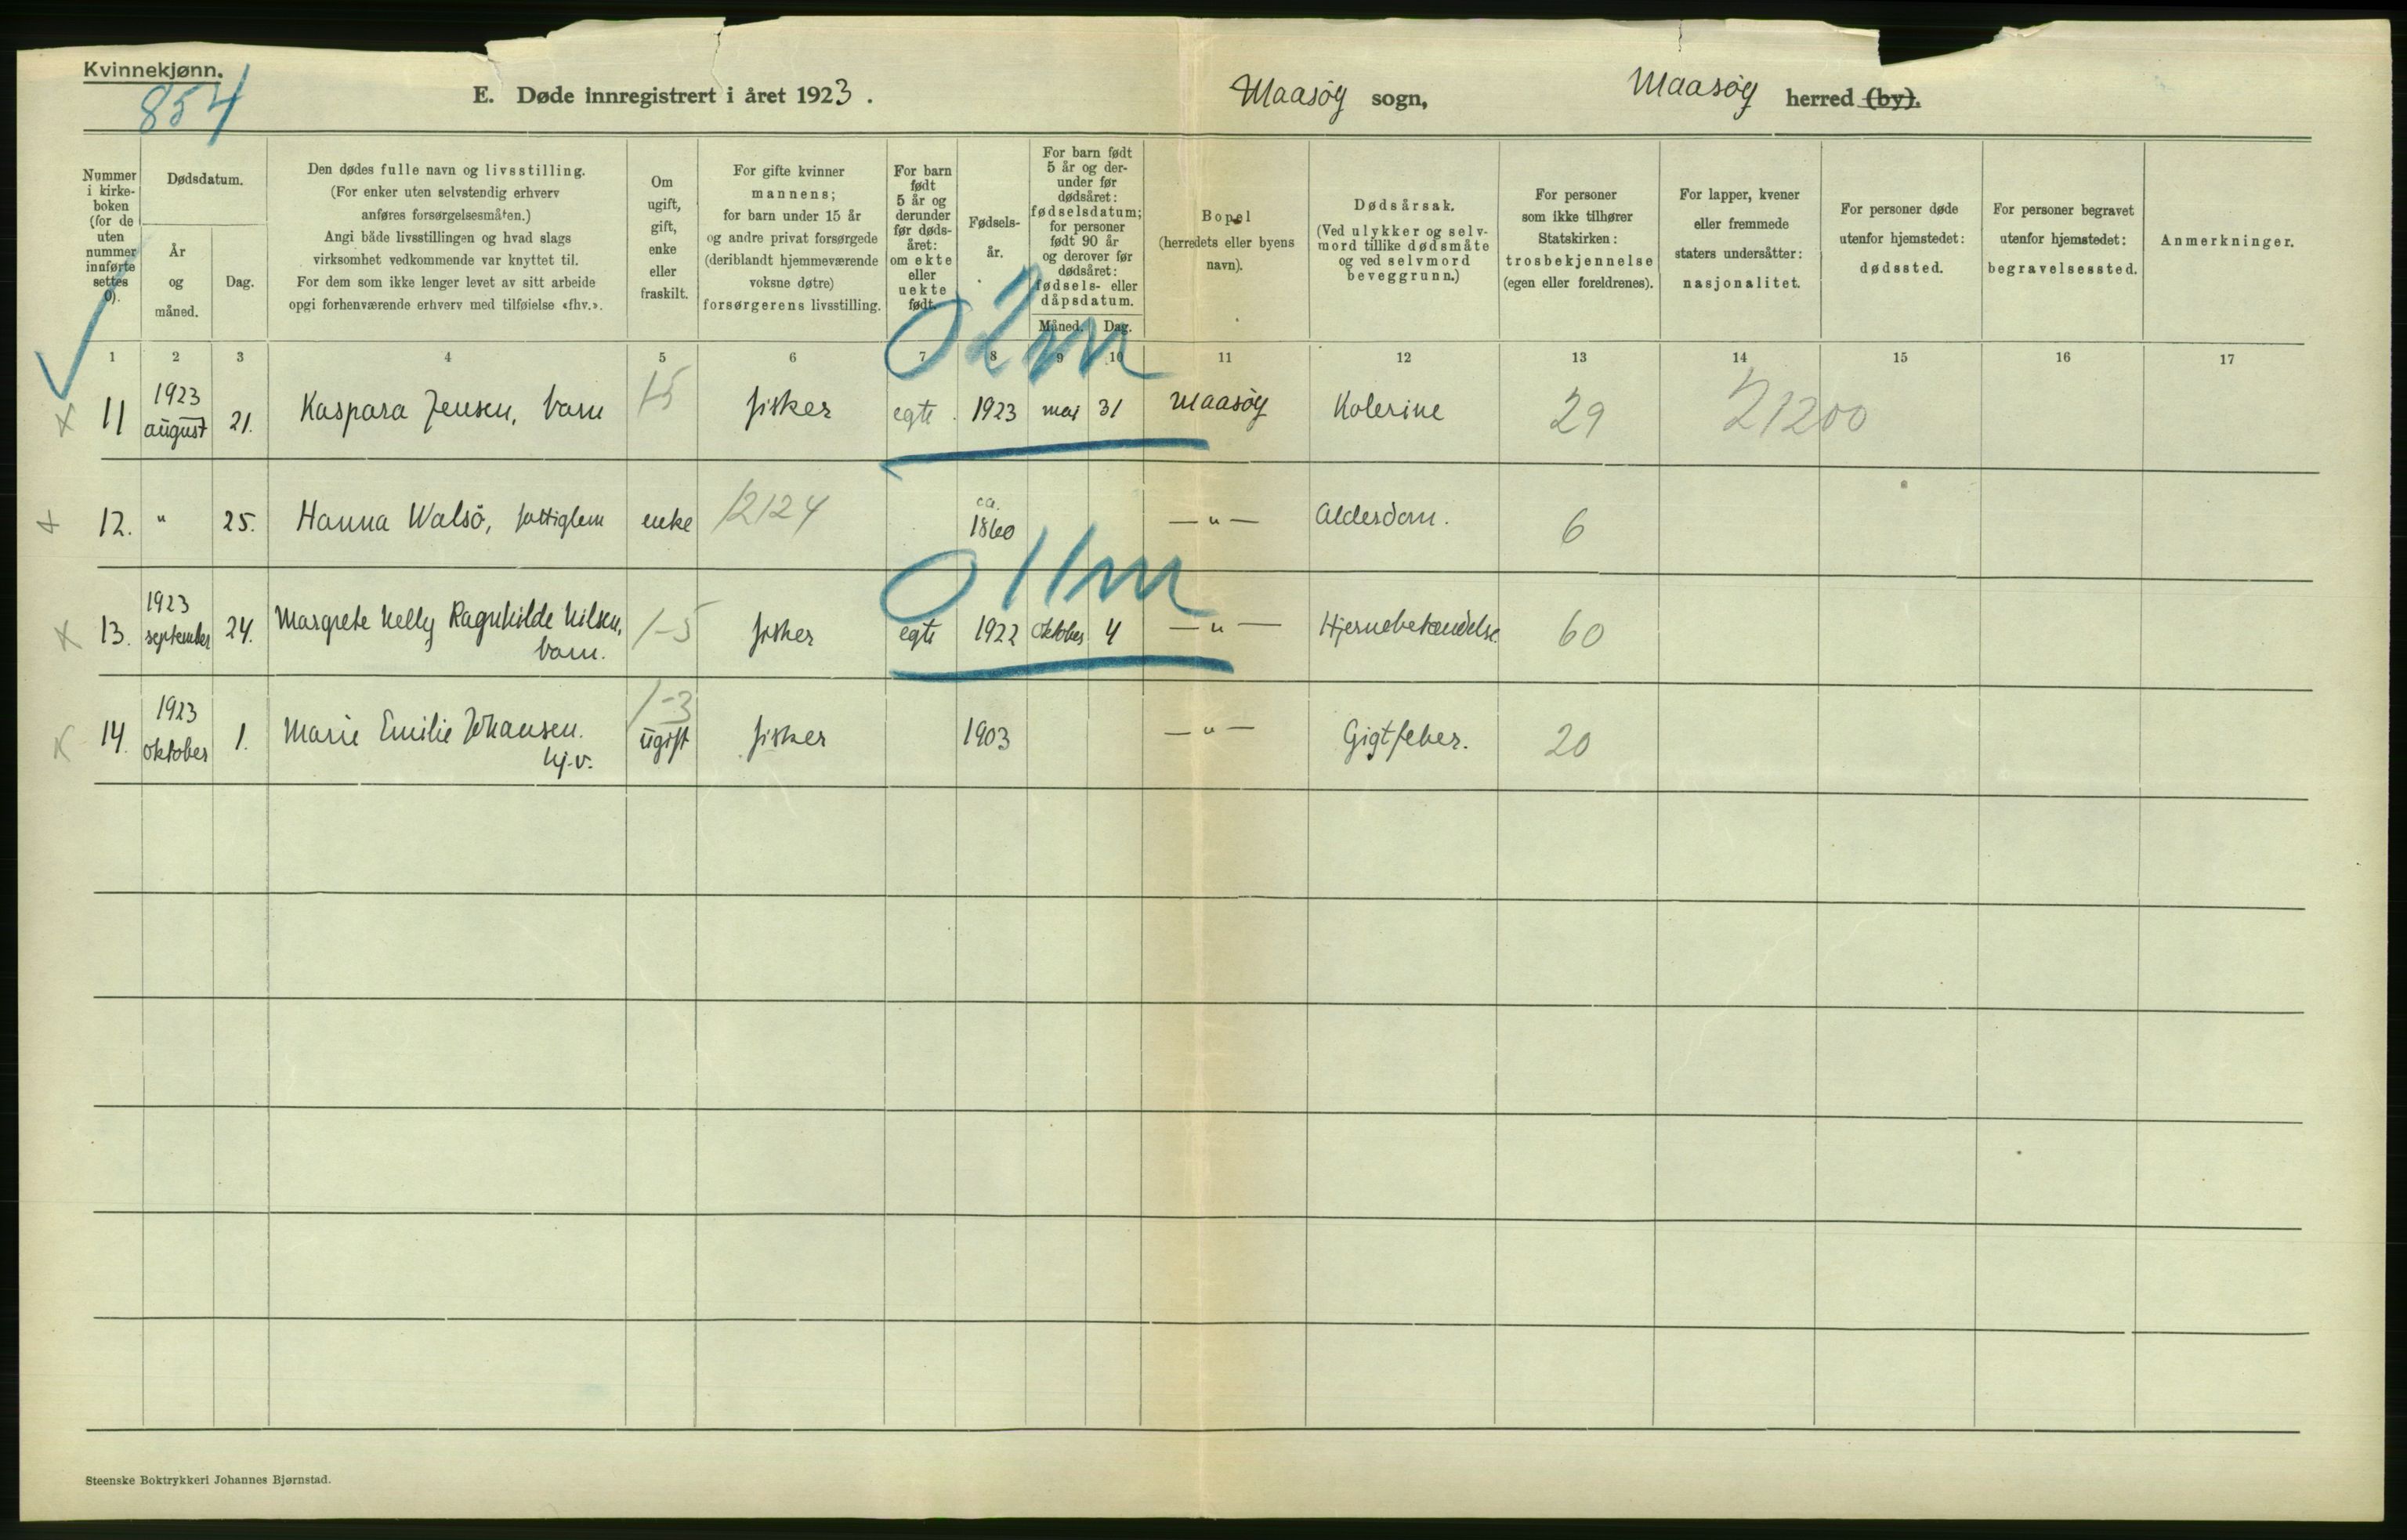 Kvinnekjønn.
854
E. Døde innregistrert i året 1923.
Maasøy sogn,
Maasøy herred (by).
Nummer
i kirke-
boken
(for de
uten
nummer
innførte
settes
0).
Dødsdatum.
År
og
måned.
Dag.
Den dødes fulle navn og livsstilling.
(For enker uten selvstendig erhverv
anføres forsørgelsesmåten.)
Angi både livsstillingen og hvad slags
virksomhet vedkommende var knyttet til.
For dem som ikke lenger levet av sitt arbeide
opgi forhenværende erhverv med tilføielse «fhv.».
Om
ugift,
gift,
enke
eller
fraskilt.
For gifte kvinner
mannens;
for barn under 15 år
og andre privat forsørgede
(deriblandt hjemmeværende
voksne døtre)
forsørgerens livsstilling.
For barn
født
5 år og
derunder
før døds-
året:
om ekte
eller
uekte
født.
Fødsels-
år.
For barn født
5 år og der-
under før
dødsåret:
fødselsdatum;
for personer
født 90 år
og derover før
dødsåret:
fødsels- eller
dåpsdatum.
Måned. Dag.
Bopel
(herredets eller byens
navn).
Dødsårsak.
(Ved ulykker og selv-
mord tillike dødsmåte
og ved selvmord
beveggrunn.)
For personer
som ikke tilhører
Statskirken:
trosbekjennelse
(egen eller foreldrenes).
For lapper, kvener
eller fremmede
staters undersåtter:
nasjonalitet.
For personer døde
utenfor hjemstedet:
dødssted.
For personer begravet
utenfor hjemstedet:
begravelsessted.
Anmerkninger.
1 2 3 4 5 6 7 8 9 10 11 12 13 14 15 16 17
0 2m
11 1923 august 21. Kaspara Jensen, barn 1-5 fisker egte 1923 mai 31 Maasøy Kolerine 29 21200
12. " 25. Hanna Walsö, fattiglem enke 12124 ca. 1860 — " — Alderdom. 6
0 11m
13. 1923 september 24. Margrete Nelly Ragnhilde Nilsen, barn. 1-5 fisker egte 1922 oktober 4 — " — Hjernebetændelse. 60
14. 1923 oktober 1. Marie Emilie Johansen. hj.v. 1-3 ugift fisker 1903 — " — Gigtfeber. 20
Steenske Boktrykkeri Johannes Bjørnstad.